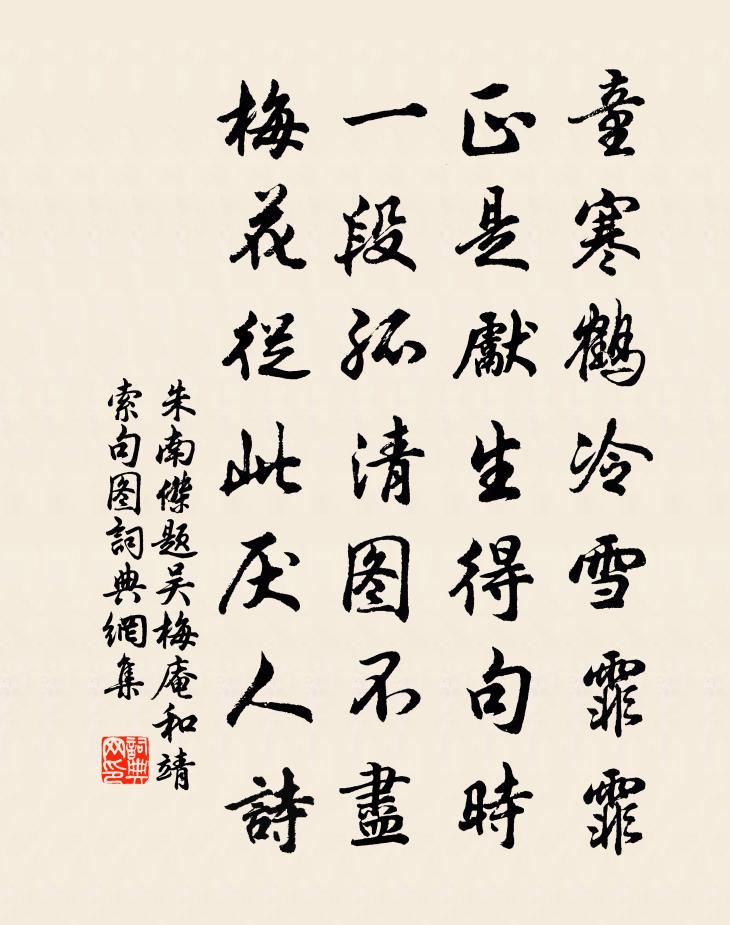 童寒鶴冷雪霏霏
正是獻生得句時
一段孤清图不盡
梅花從此厌人詩
朱南傑题吴梅庵和靖
索句图詞典網集
詞典
网印